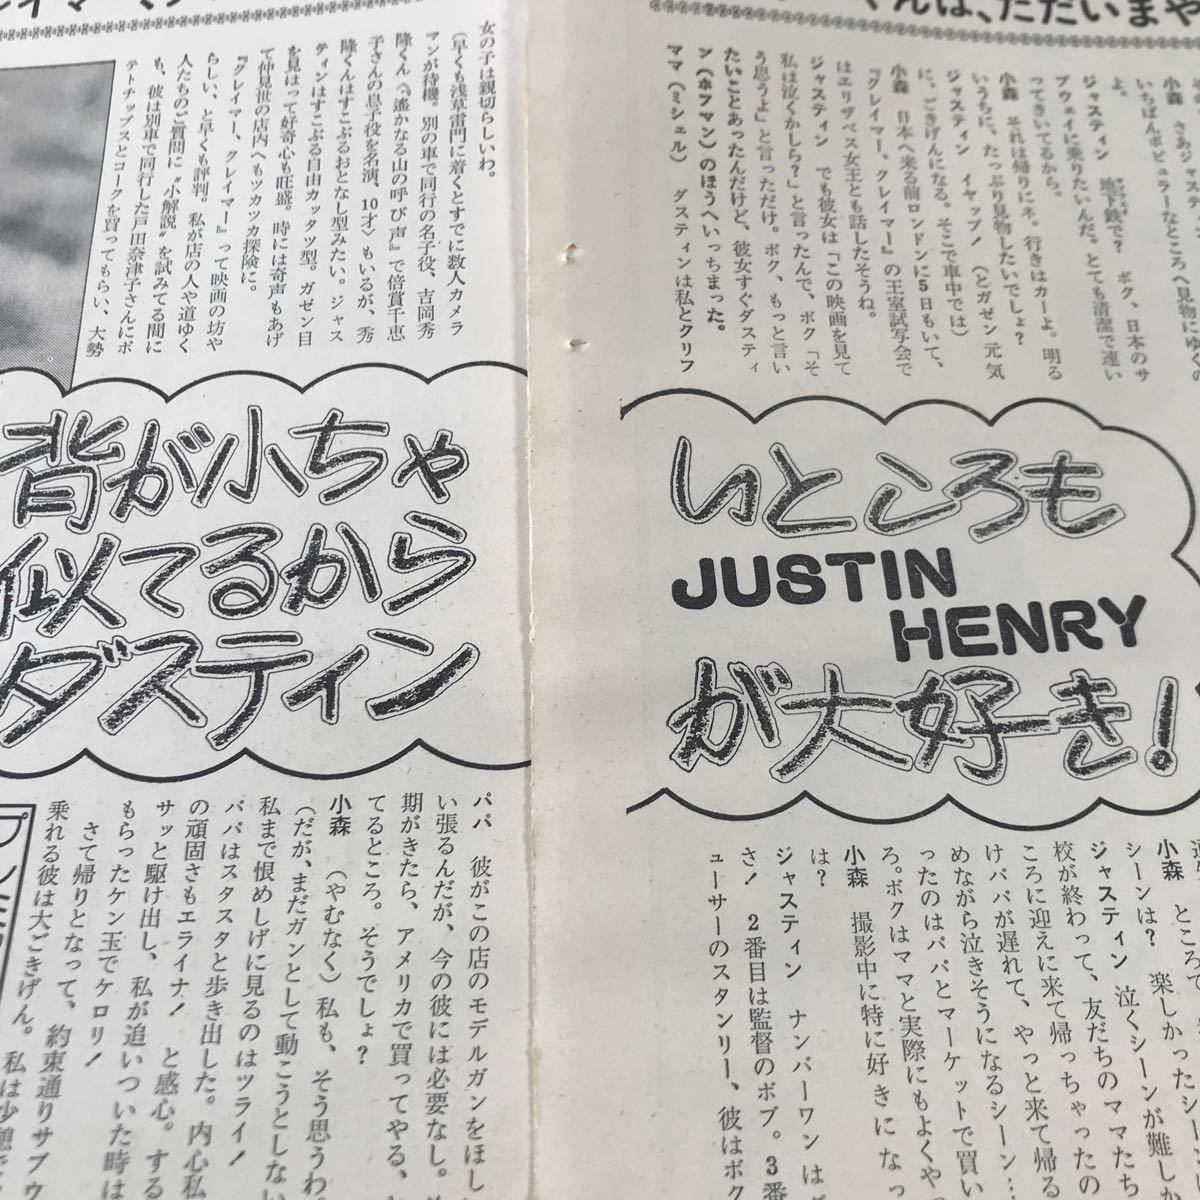 くんは、ただいまや
小森　さあジャステ
いちばんポピュラーなところへ見物にゆくの
よ。
ジャスティン　地下鉄で？　ボク、日本のサ
ブウェイに乗りたいんだ。とても清潔で速い
ってきいてるから。
小森　それは帰りにネ。行きはカーよ。明る
いうちに、たっぷり見物したいでしょ？
ジャスティン　イヤップ！　（とガゼン元気
に、ごきげんになる。そこで車中では）
小森　日本へ来る前ロンドンに5日もいて、
『クレイマー、クレイマー』の王室試写会で
はエリザベス女王とも話したそうね。
ジャスティン　でも彼女は「この映画を見て
私は泣くかしら？」と言ったんで、ボク「そ
う思うよ」と言っただけ。ボク、もっと言い
たいことあったんだけど、彼女すぐダスティ
ン（ホフマン）のほうへいっちまった。
ママ（ミシェル）　ダスティンは私とクリフ
いところも
JUSTIN
HENRY
が大好き！
小森　ところで、
シーンは？　楽しかったシー
ジャスティン　泣くシーンが難しか
校が終わって、友だちのママたち
ころに迎えに来て帰っちゃったの
けパパが遅れて、やっと来て帰る
めながら泣きそうになるシーン…
ったのはパパとマーケットで買い
ろ。ボクはママと実際にもよくや
小森　撮影中に特に好きになっ
は？
ジャスティン　ナンバーワンはダ
さ！　2番目は監督のボブ。3番
ューサーのスタンリー、彼はボク
女の子は親切らしいわ。
（早くも浅草雷門に着くとすでに数人カメラ
マンが待機。別の車で同行の名子役、吉岡秀
隆くん（『遙かなる山の呼び声』で倍賞千恵
子さんの息子役を名演、10才）もいるが、秀
隆くんはすこぶるおとなし型みたい。ジャス
ティンはすこぶる自由カッタツ型。ガゼン目
を見はって好奇心も旺盛。時には奇声もあげ
て仲見世の店内へもツカツカ探険に。
『クレイマー、クレイマー』って映画の坊や
らしい、と早くも評判。私が店の人や道ゆく
人たちのご質問に“小解説”を試みてる間に
も、彼は別車で同行した戸田奈津子さんにポ
テトチップスとコークを買ってもらい、大勢
背が小ちゃ
似てるから
ダスティン
パパ　彼がこの店のモデルガンをほし
い張るんだが、今の彼には必要なし。
期がきたら、アメリカで買ってやる、
てるところ。そうでしょ？
小森　（やむなく）私も、そう思うわ。
（だが、まだガンとして動こうとしない
私まで恨めしげに見るのはツライ！
パパはスタスタと歩き出した。内心私
の頑固さもエライナ！　と感心。する
サッと駆け出し、私が追いついた時は
もらったケン玉でケロリ！
　さて帰りとなって、約束通りサブウ
乗れる彼は大ごきげん。私は少憩で